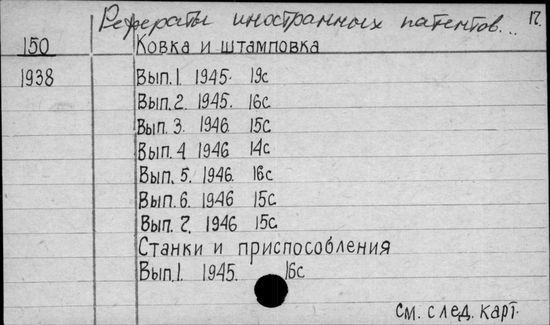 Рефераты иностранных патентов... 17.
150 Ковка и штамповка
1938 Вып.1 1945. 19с
Вып.2. 1945. 16с
Вып.3. 1946. 15с
Вып.4 1946 14с
Вып.5. 1946. 16с
Вып.6. 1946 15с
Вып.7. 1946 15с
Станки и приспособления
Вып.1. 1945. 16с
См. след. карт.